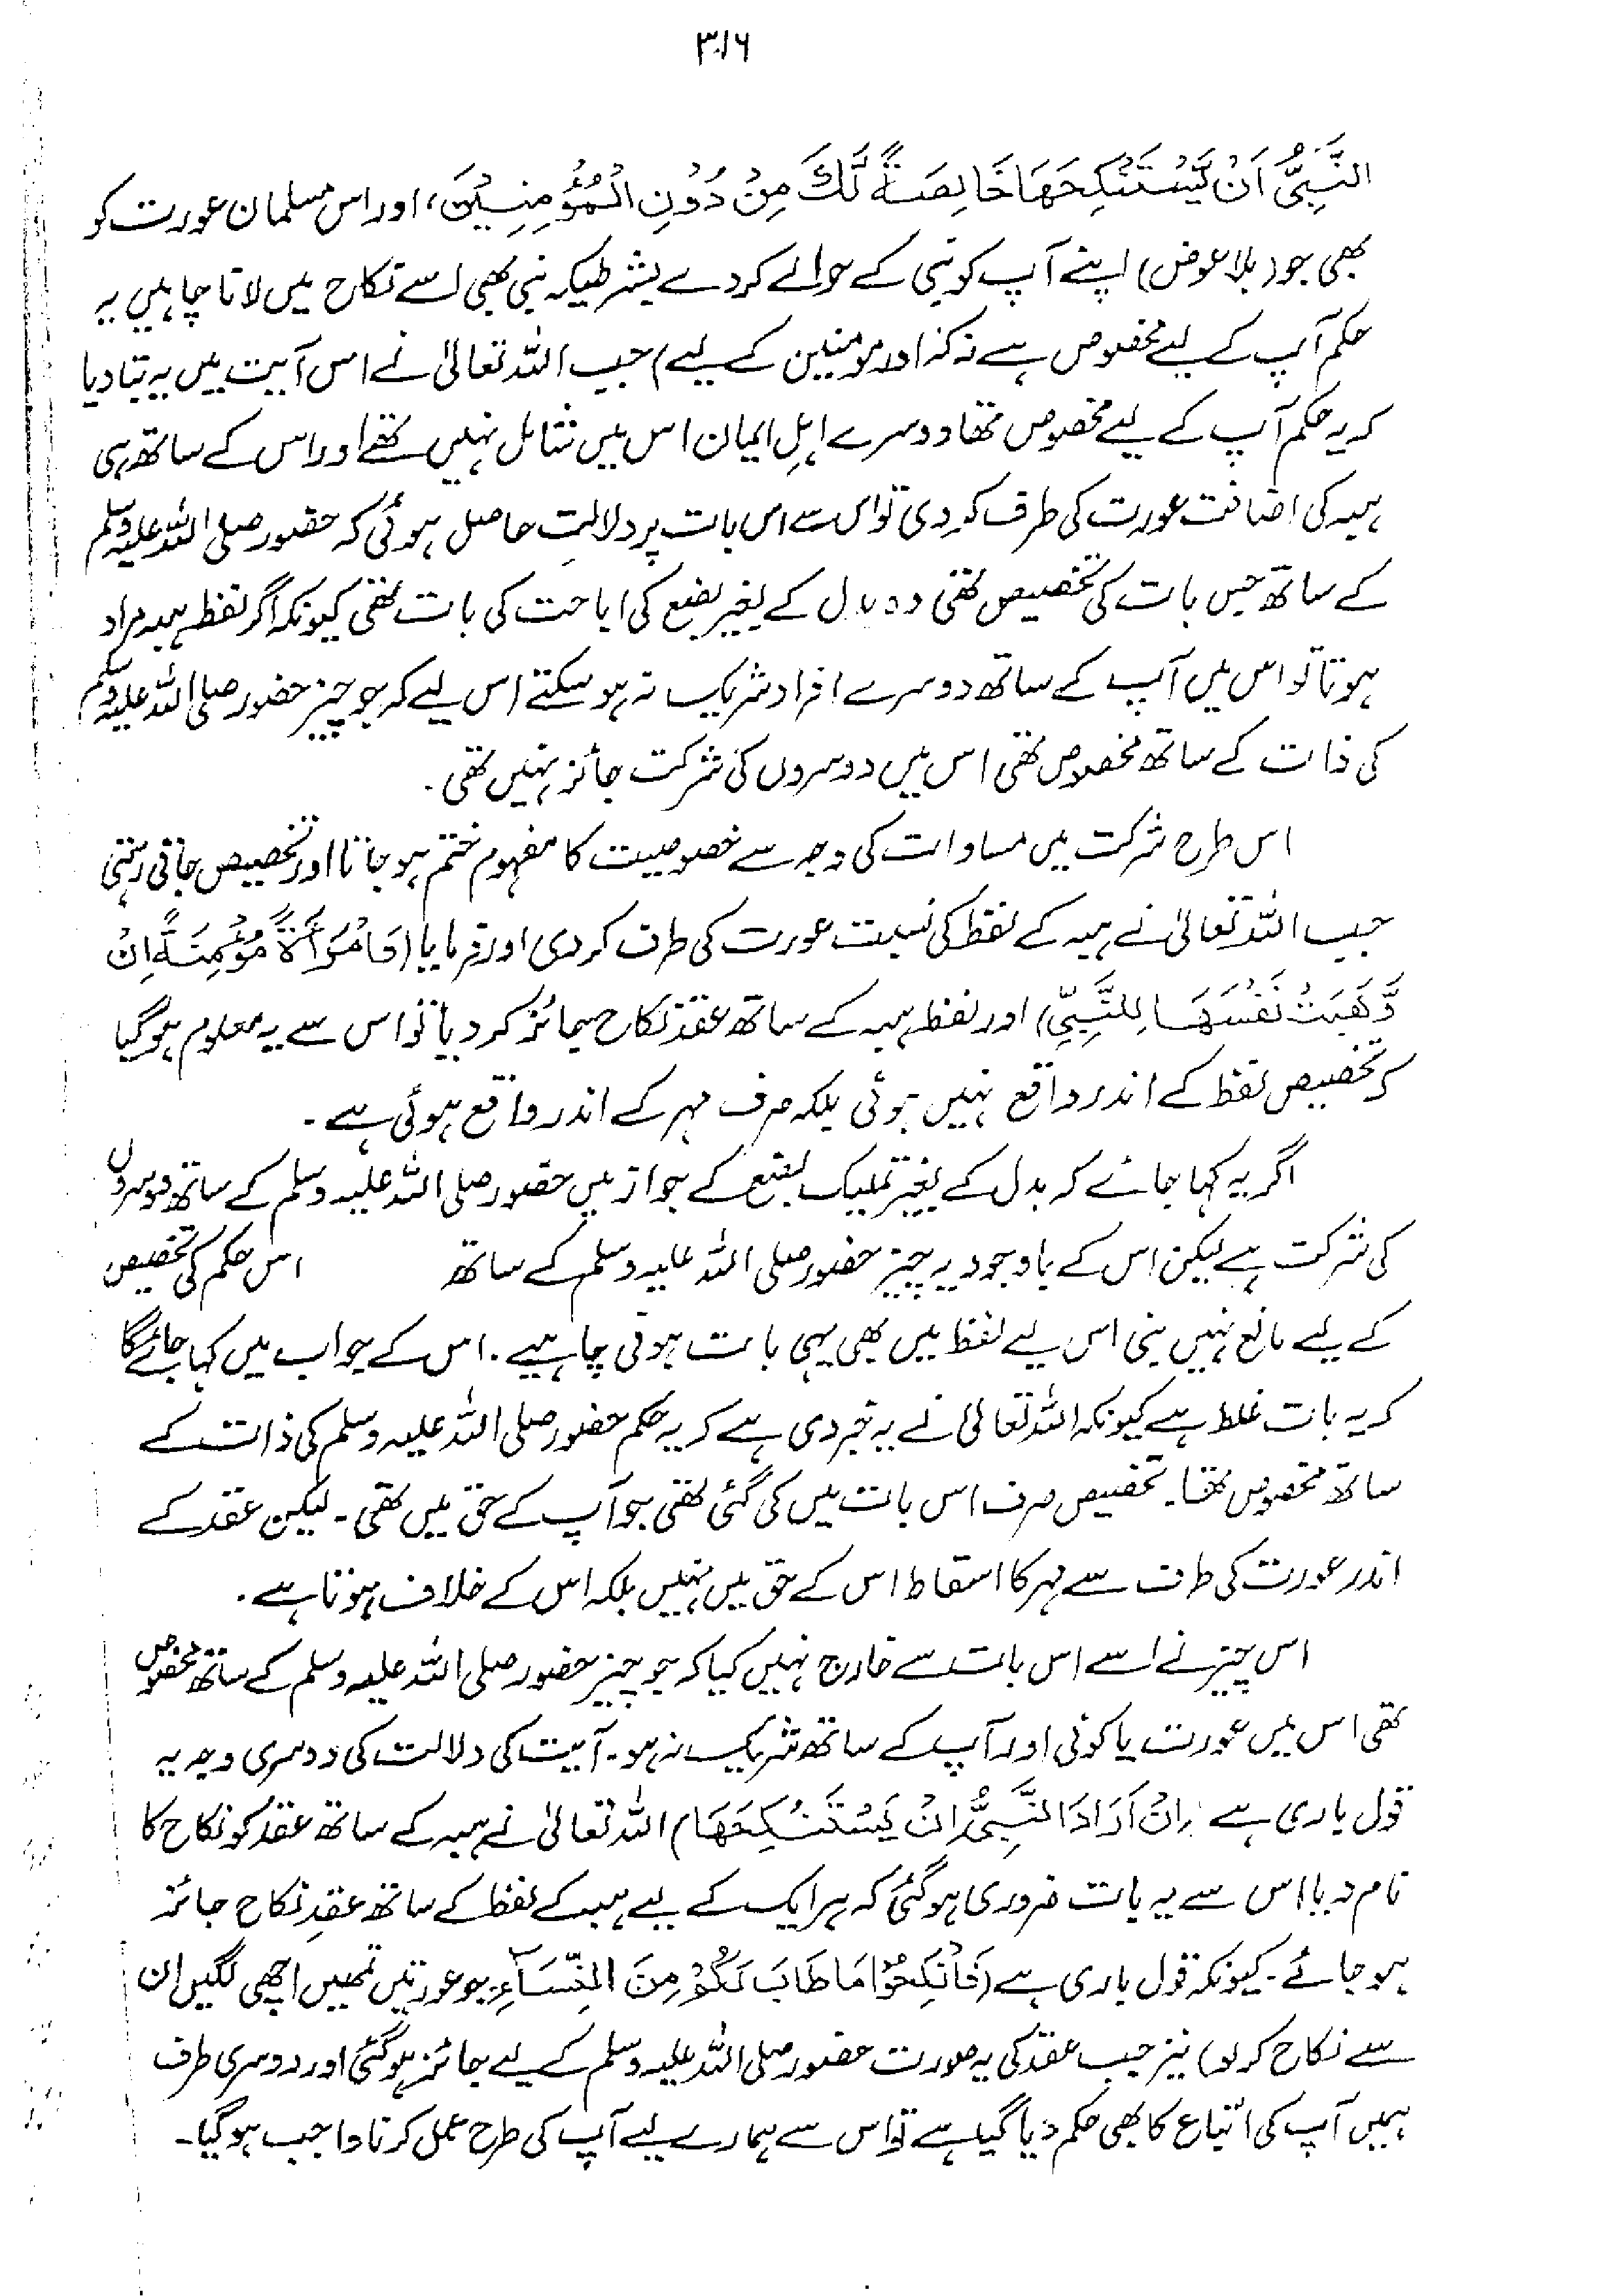 ۳۱۶
النَّبِيُّ اَنْ يَّسْتَنْكِحَهَا خَالِصَةً لَّكَ مِنْ دُوْنِ الْمُؤْمِنِيْنَ، اور اس مسلمان عورت کو
بھی جو (بلا عوض) اپنے آپ کو نبی کے حوالے کر دے بشرطیکہ نبی بھی اسے نکاح میں لانا چاہیں یہ
حکم آپ کے لیے مخصوص ہے نہ کہ اور مومنین کے لیے) جب اللہ تعالیٰ نے اس آیت میں یہ بتا دیا
کہ یہ حکم آپ کے لیے مخصوص تھا دوسرے اہلِ ایمان اس میں شامل نہیں تھے اور اس کے ساتھ ہی
ہبہ کی اضافت عورت کی طرف کر دی تو اس سے اس بات پر دلالت حاصل ہوئی کہ حضور صلی اللہ علیہ وسلم
کے ساتھ جس بات کی تخصیص تھی وہ بدل کے بغیر بضع کی اباحت کی بات تھی کیونکہ اگر لفظ ہبہ مراد
ہوتا تو اس میں آپ کے ساتھ دوسرے افراد شریک نہ ہو سکتے اس لیے کہ جو چیز حضور صلی اللہ علیہ وسلم
کی ذات کے ساتھ مخصوص تھی اس میں دوسروں کی شرکت جائز نہیں تھی۔
اس طرح شرکت میں مساوات کی وجہ سے خصوصیت کا مفہوم ختم ہو جاتا اور تخصیص جاتی رہتی
جب اللہ تعالیٰ نے ہبہ کے لفظ کی نسبت عورت کی طرف کر دی اور فرمایا (وَامْرَاَةً مُّؤْمِنَةً اِنْ
وَّهَبَتْ نَفْسَهَا لِلنَّبِيِّ) اور لفظ ہبہ کے ساتھ عقدِ نکاح جائز کر دیا تو اس سے یہ معلوم ہو گیا
کہ تخصیص لفظ کے اندر واقع نہیں ہوئی بلکہ صرف مہر کے اندر واقع ہوئی ہے۔
اگر یہ کہا جائے کہ بدل کے بغیر تملیک بضع کے جواز میں حضور صلی اللہ علیہ وسلم کے ساتھ دوسروں
کی شرکت ہے لیکن اس کے باوجود یہ چیز حضور صلی اللہ علیہ وسلم کے ساتھ اس حکم کی تخصیص
کے لیے مانع نہیں بنی اس لیے لفظ میں بھی یہی بات ہونی چاہیے۔ اس کے جواب میں کہا جائے گا
کہ یہ بات غلط ہے کیونکہ اللہ تعالیٰ نے یہ خبر دی ہے کہ یہ حکم حضور صلی اللہ علیہ وسلم کی ذات کے
ساتھ مخصوص تھا۔ تخصیص صرف اس بات میں کی گئی تھی جو آپ کے حق میں تھی۔ لیکن عقد کے
اندر عورت کی طرف سے مہر کا اسقاط اس کے حق میں نہیں بلکہ اس کے خلاف ہوتا ہے۔
اس چیز نے اسے اس بات سے خارج نہیں کیا کہ جو چیز حضور صلی اللہ علیہ وسلم کے ساتھ مخصوص
تھی اس میں عورت یا کوئی اور آپ کے ساتھ شریک نہ ہو۔ آیت کی دلالت کی دوسری وجہ یہ
قول باری ہے (اِنْ اَرَادَ النَّبِيُّ اَنْ يَسْتَنْكِحَهَا) اللہ تعالیٰ نے ہبہ کے ساتھ عقد کو نکاح کا
نام دیا اس سے یہ بات ضروری ہو گئی کہ ہر ایک کے لیے ہبہ کے لفظ کے ساتھ عقدِ نکاح جائز
ہو جائے۔ کیونکہ قول باری ہے (فَانْكِحُوْا مَا طَابَ لَكُمْ مِنَ النِّسَآءِ جو عورتیں تمھیں اچھی لگیں ان
سے نکاح کر لو) نیز جب عقد کی یہ صورت حضور صلی اللہ علیہ وسلم کے لیے جائز ہو گئی اور دوسری طرف
ہمیں آپ کی اتباع کا بھی حکم دیا گیا ہے تو اس سے ہمارے لیے آپ کی طرح عمل کرنا واجب ہو گیا۔